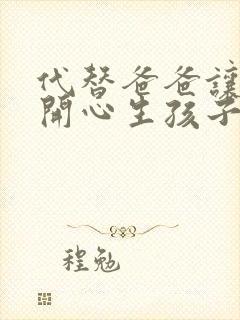 代替爸爸讓
開心生孩子
程勉